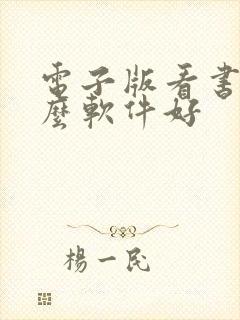 電子版看書
麼軟件好
楊一民